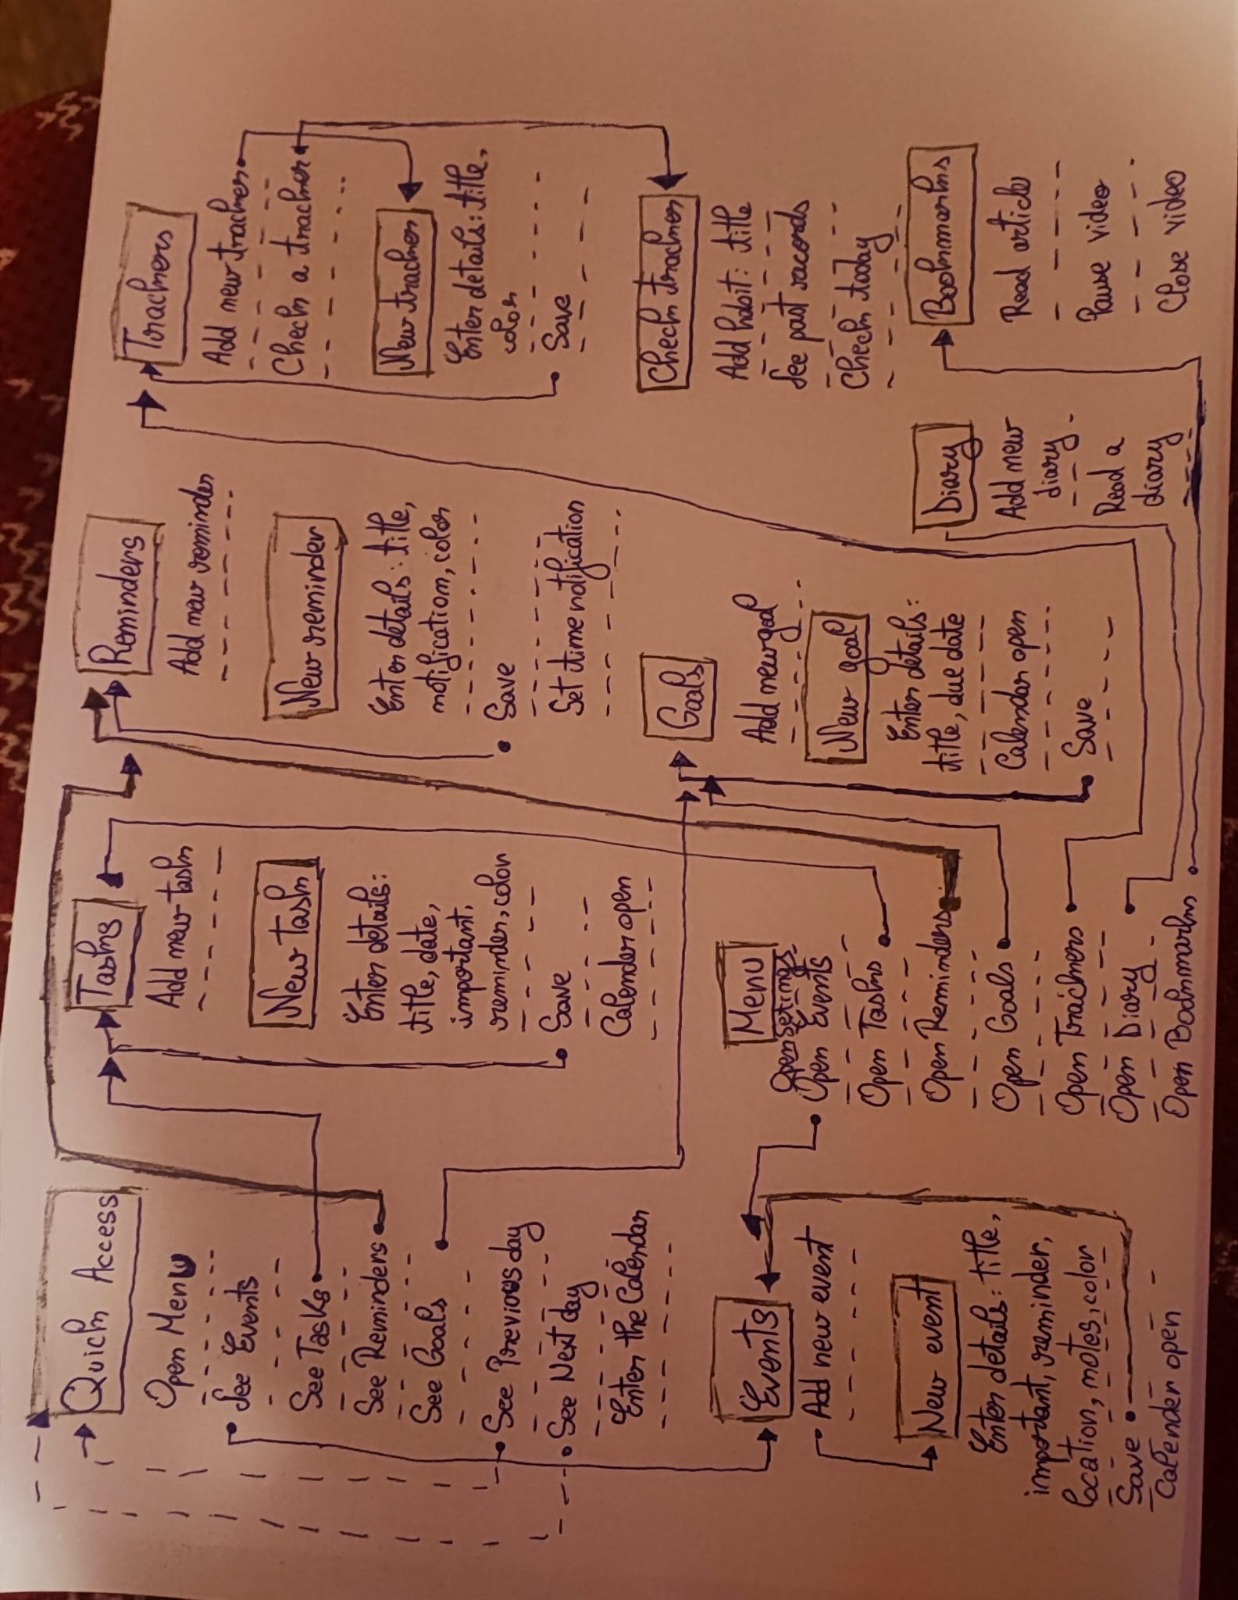 Quick Access
Open Menu
See Events
See Tasks
See Reminders
See Goals
See Previous day
See Next day
Enter the Calendar
Events
Add new event
New event
Enter details: title,
important, reminder,
location, notes, color
Save
Calender open
Tasks
Add new task
New task
Enter details:
title, date,
important,
reminder, color
Save
Calender open
Menu
Open Setings
Open Events
Open Tasks
Open Reminders
Open Goals
Open Trackers
Open Diary
Open Bookmarks
Reminders
Add new reminder
New reminder
Enter details: title,
notification, color
Save
Set time notification
Goals
Add new goal
New goal
Enter details:
title, due date
Calendar open
Save
Trackers
Add new tracker
Check a tracker
New tracker
Enter details: title,
color
Save
Check tracker
Add habit: title
See past racords
Check today
Diary
Add new
diary
Read a
diary
Bookmarks
Read article
Pause video
Close video